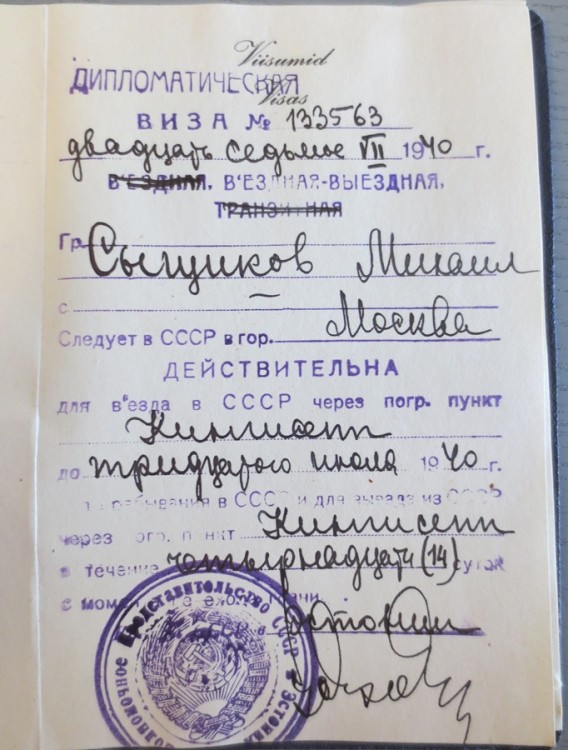 Viisumid
ДИПЛОМАТИЧЕСКАЯ
Visas
ВИЗА № 133563
двадцать седьмое VII 1940 г.
В'ЕЗДНАЯ, В'ЕЗДНАЯ-ВЫЕЗДНАЯ,
ТРАНЗИТНАЯ
Гр. Сыщиков Михаил
с —
Следует в СССР в гор. Москва
ДЕЙСТВИТЕЛЬНА
для в'езда в СССР через погр. пункт
Кингисепп
до тридцатого июля 1940 г.
пребывания в СССР и для выезда из СССР
через погр. пункт Кингисепп
в течение четырнадцати (14) суток
с момента
в Эстонии
Полномочное Представительство СССР в Эстонии